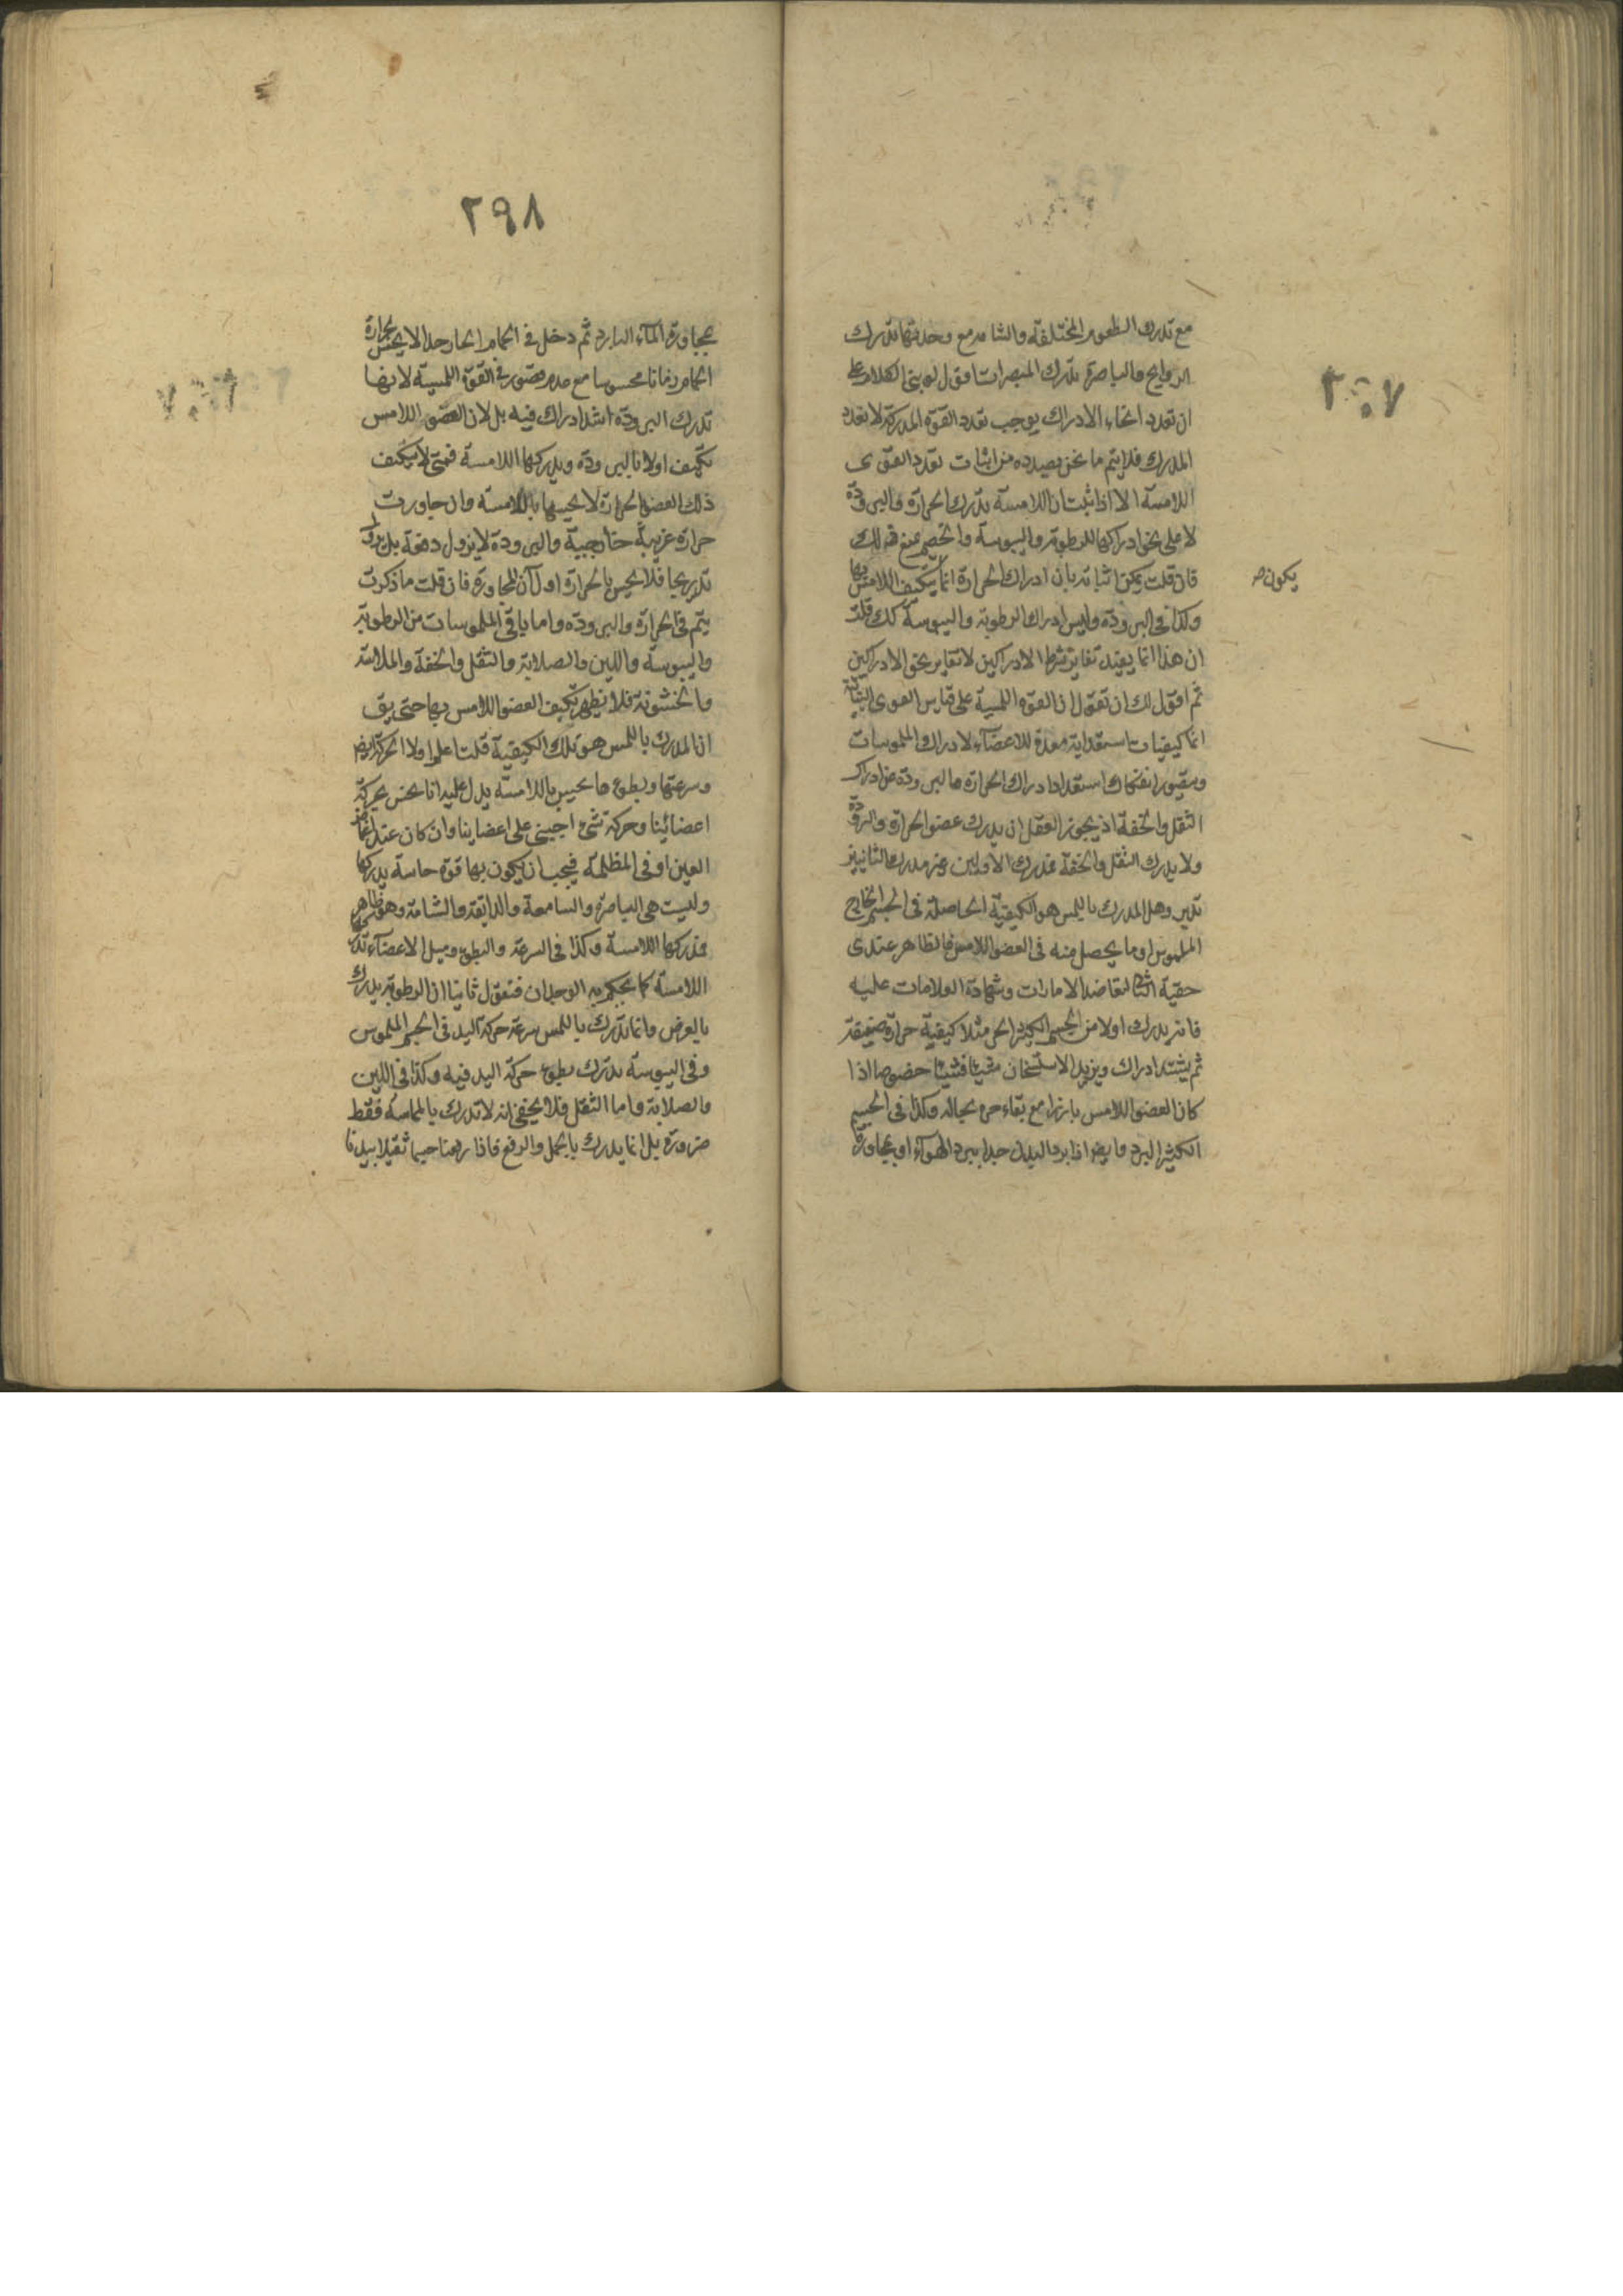 ٢٩٧
مع تدرك الطعوم المختلفة والشامة مع وحدتها تدرك
الروايح والباصرة تدرك المبصرات اقول لو بنى الكلام على
ان تعدد انحاء الادراك يوجب تعدد القوة المدركة لا تعدد
المدرك فلا يتم ما نحن بصدده من اثبات تعدد القوى
اللامسة الا اذا ثبت ان اللامسة تدرك الحرارة والبرودة
لا على نحو ادراكها للرطوبة واليبوسة والخصم يمنع ذلك
فان قلت يمكن اثباته بان ادراك الحرارة انما يتكيف اللامس بها
يكون صح
وكذا في البرودة وليس ادراك الرطوبة واليبوسة كك قلت
ان هذا انما يفيد تغاير شرط الادراكين لا تغاير نحو الادراكين
ثم اقول لك ان تقول ان القوة اللمسية على قياس القوى الثابتة
انما كيفيات استعدادية معدة للاعضاء لادراك الملموسات
ويتصور انفكاك استعداد ادراك الحرارة والبرودة عن ادراك
الثقل والخفة اذ يجوز العقل ان يدرك عضو الحرارة والبرودة
ولا يدرك الثقل والخفة فمدرك الاولين غير مدرك الثانيين
تدبر وهل المدرك باللمس هو الكيفية الحاصلة في الجسم الخارج
الملموس او ما يحصل منه في العضو اللامس فالظاهر عندي
حقية الثانى لتعاضد الامارات وشهادة العلامات عليه
فانه يدرك اولا من الجسم الكثير الحر مثلا كيفية حرارة ضعيفة
ثم يشتد ادراك ويزيد الاستسخان شيئا فشيئا خصوصا اذا
كان العضو اللامس باردا مع بقاء حره بحاله وكذا في الجسم
الكثير البرد وايضا اذا برد البدن جدا ببرد الهواء او بمجاورة
٢٩٨
بمجاورة الماء البارد ثم دخل في الحمام الحار جدا لا يحس بحرارة
الحمام زمانا محسوسا مع عدم قصور في القوة اللمسية لانها
تدرك البرودة اشد ادراك فيه بل لان العضو اللامس
تكيف اولا بالبرودة ويدركها اللامسة فمتى لا يتكيف
ذلك العضو الحرارة لا يحسها باللامسة وان جاورت
حرارة غريبة خارجية والبرودة لا يزول دفعة بل يزول
تدريجا فلا يحس بالحرارة اول آن المجاورة فان قلت ما ذكرت
يتم في الحرارة والبرودة واما باقي الملموسات من الرطوبة
واليبوسة واللين والصلابة والثقل والخفة والملاسة
والخشونة فلا يظهر تكيف العضو اللامس بها حتى يق
ان المدرك باللمس هو تلك الكيفية قلت اعلم اولا ان الحركة ايضا
وسرعتها وبطوءها يحس باللامسة يدل عليه انا نحس بحركة
اعضائنا وحركة شئ اجنبي على اعضاينا وان كان عند اغماض
العين او في المظلمة فيجب ان يكون بها قوة حاسة يدركها
وليست هي الباصرة والسامعة والذايقة والشامة وهو ظاهر
فمدركها اللامسة وكذا في السرعة والبطوء وميل الاعضاء تدركها
اللامسة كما يحكم به الوجدان فنقول ثانيا ان الرطوبة يدرك
بالعرض وانما تدرك باللمس سرعة حركة اليد في الجسم الملموس
وفي اليبوسة تدرك بطوء حركة اليد فيه وكذا في اللين
والصلابة واما الثقل فلا يخفى انه لا تدرك بالمماسة فقط
ضرورة بل انما يدرك بالحمل والرفع فاذا رفعنا جسما ثقيلا بيدنا